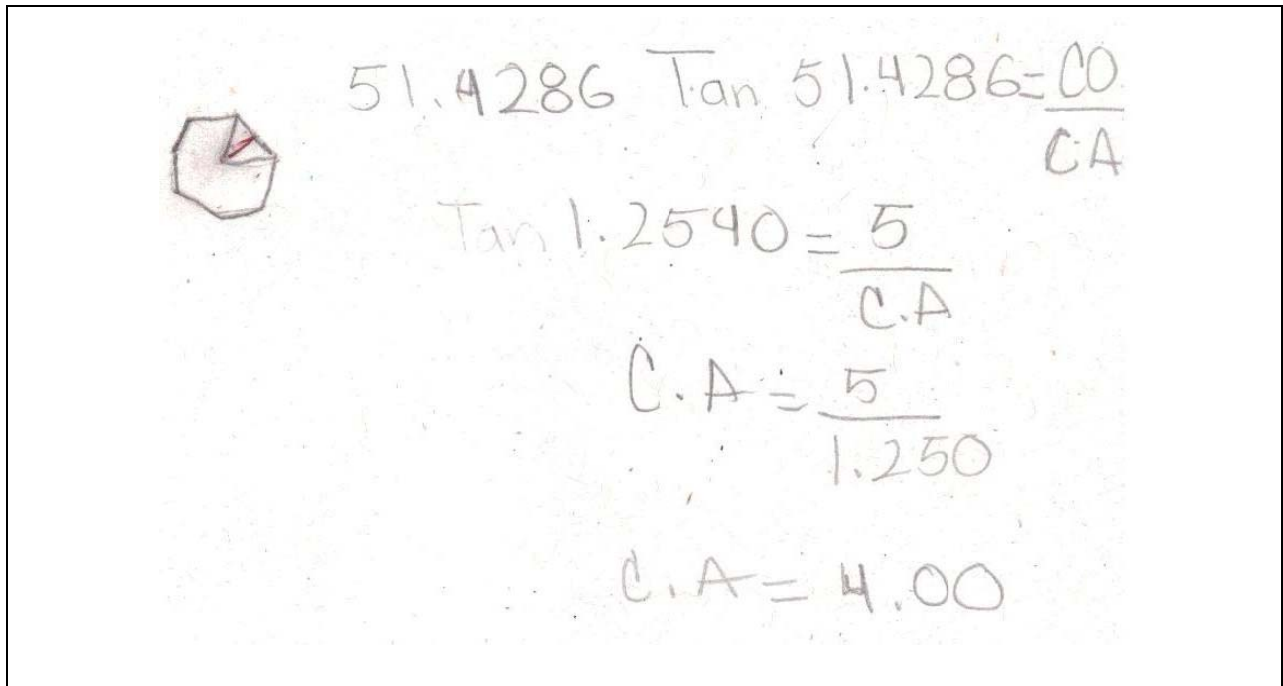 51.4286 Tan 51.4286 = CO/CA
Tan 1.2540 = 5/C.A
C.A = 5/1.250
C.A = 4.00